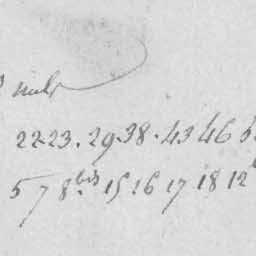 22.23.29.38.43 46
5 7 8 bis 15.16 17 18 12